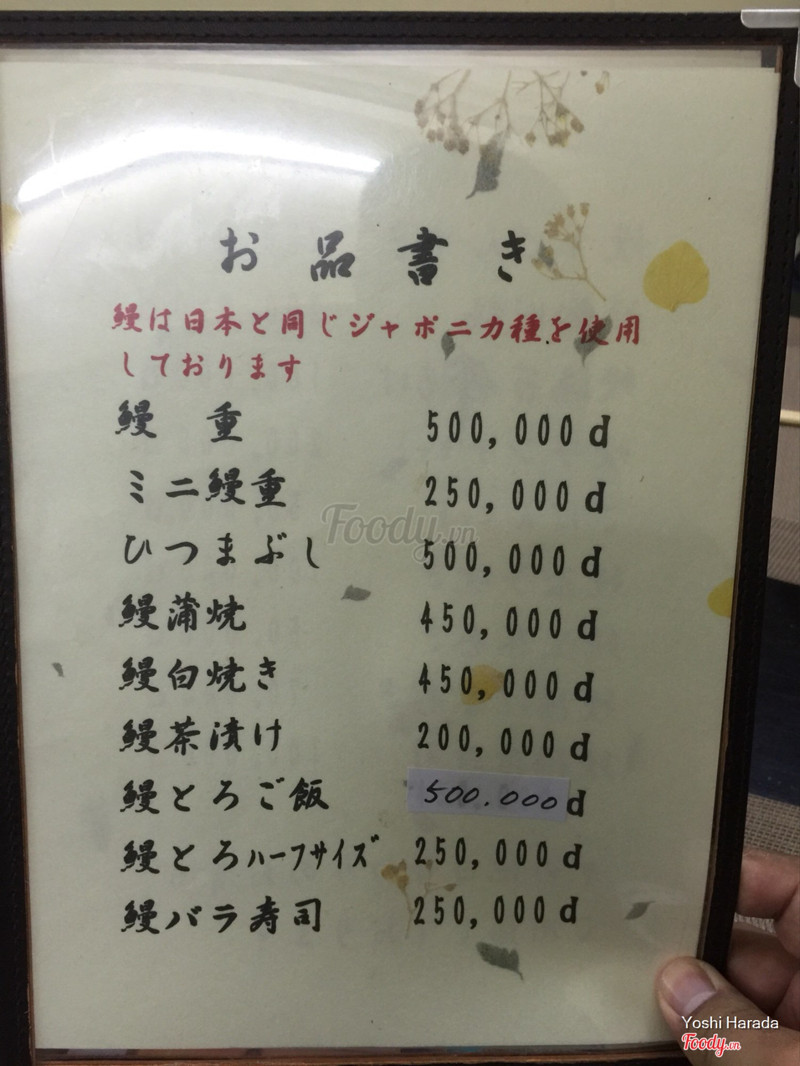 お品書き
鰻は日本と同じジャポニカ種を使用
しております
鰻 重 500,000 d
ミニ鰻重 250,000 d
ひつまぶし 500,000 d
鰻蒲焼 450,000 d
鰻白焼き 450,000 d
鰻茶漬け 200,000 d
鰻とろご飯 500.000 d
鰻とろハーフサイズ 250,000 d
鰻バラ寿司 250,000 d
Foody.vn
Yoshi Harada
Foody.vn